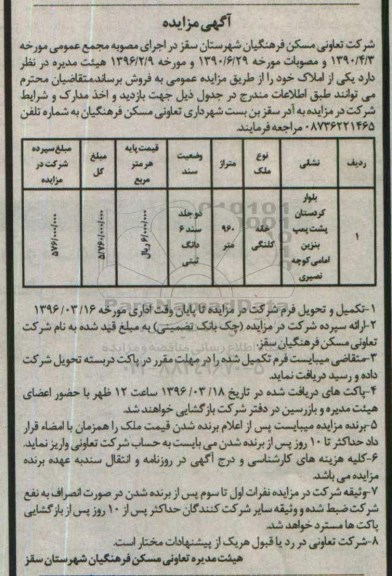 آگهی مزایده
شرکت تعاونی مسکن فرهنگیان شهرستان سقز در اجرای مصوبه مجمع عمومی مورخه
۱۳۹۰/۴/۳ و مصوبات مورخه ۱۳۹۰/۶/۲۹ و مورخه ۱۳۹۶/۲/۹ هیئت مدیره در نظر
دارد یکی از املاک خود را از طریق مزایده عمومی به فروش برساند متقاضیان محترم
می توانند طبق اطلاعات مندرج در جدول ذیل جهت بازدید و اخذ مدارک و شرایط
شرکت در مزایده به آدر سقز بن بست شهرداری تعاونی مسکن فرهنگیان به شماره تلفن
۰۸۷۳۶۲۲۱۴۶۵ مراجعه فرمایند.
ردیف نشانی نوع ملک متراژ وضعیت سند قیمت پایه هر متر مربع مبلغ کل مبلغ سپرده شرکت در مزایده
۱ بلوار کردستان پشت پمپ بنزین امامی کوچه نصیری خانه کلنگی ۹۶۰ متر دو جلد سند ۶ دانگ ثبتی ۶/۰۰۰/۰۰۰ ریال ۵/۷۶۰/۰۰۰/۰۰۰ ۵۷۶/۰۰۰/۰۰۰
۱-تکمیل و تحویل فرم شرکت در مزایده تا پایان وقت اداری مورخه ۱۳۹۶/۰۳/۱۶
۲-ارائه سپرده شرکت در مزایده (چک بانک تضمینی) به مبلغ قید شده به نام شرکت
تعاونی مسکن فرهنگیان سقز.
۳-متقاضی میبایست فرم تکمیل شده را در مهلت مقرر در پاکت دربسته تحویل شرکت
داده و رسید دریافت نماید.
۴-پاکت های دریافت شده در تاریخ ۱۳۹۶/۰۳/۱۸ ساعت ۱۲ ظهر با حضور اعضای
هیئت مدیره و بازرسین در دفتر شرکت بازگشایی خواهند شد.
۵-برنده مزایده میبایست پس از اعلام برنده شدن قیمت ملک را همزمان با امضاء قرار
داد حداکثر تا ۱۰ روز پس از برنده شدن می بایست به حساب شرکت تعاونی واریز نماید.
۶-کلیه هزینه های کارشناسی و درج آگهی در روزنامه و انتقال سند به عهده برنده
مزایده می باشد.
۷-وثیقه شرکت در مزایده نفرات اول تا سوم پس از برنده شدن در صورت انصراف به نفع
شرکت ضبط شده و وثیقه سایر شرکت کنندگان حداکثر پس از ۱۰ روز پس از بازگشایی
پاکت ها مسترد خواهد شد.
۸-شرکت تعاونی در رد یا قبول هر یک از پیشنهادات مختار است.
هیئت مدیره تعاونی مسکن فرهنگیان شهرستان سقز